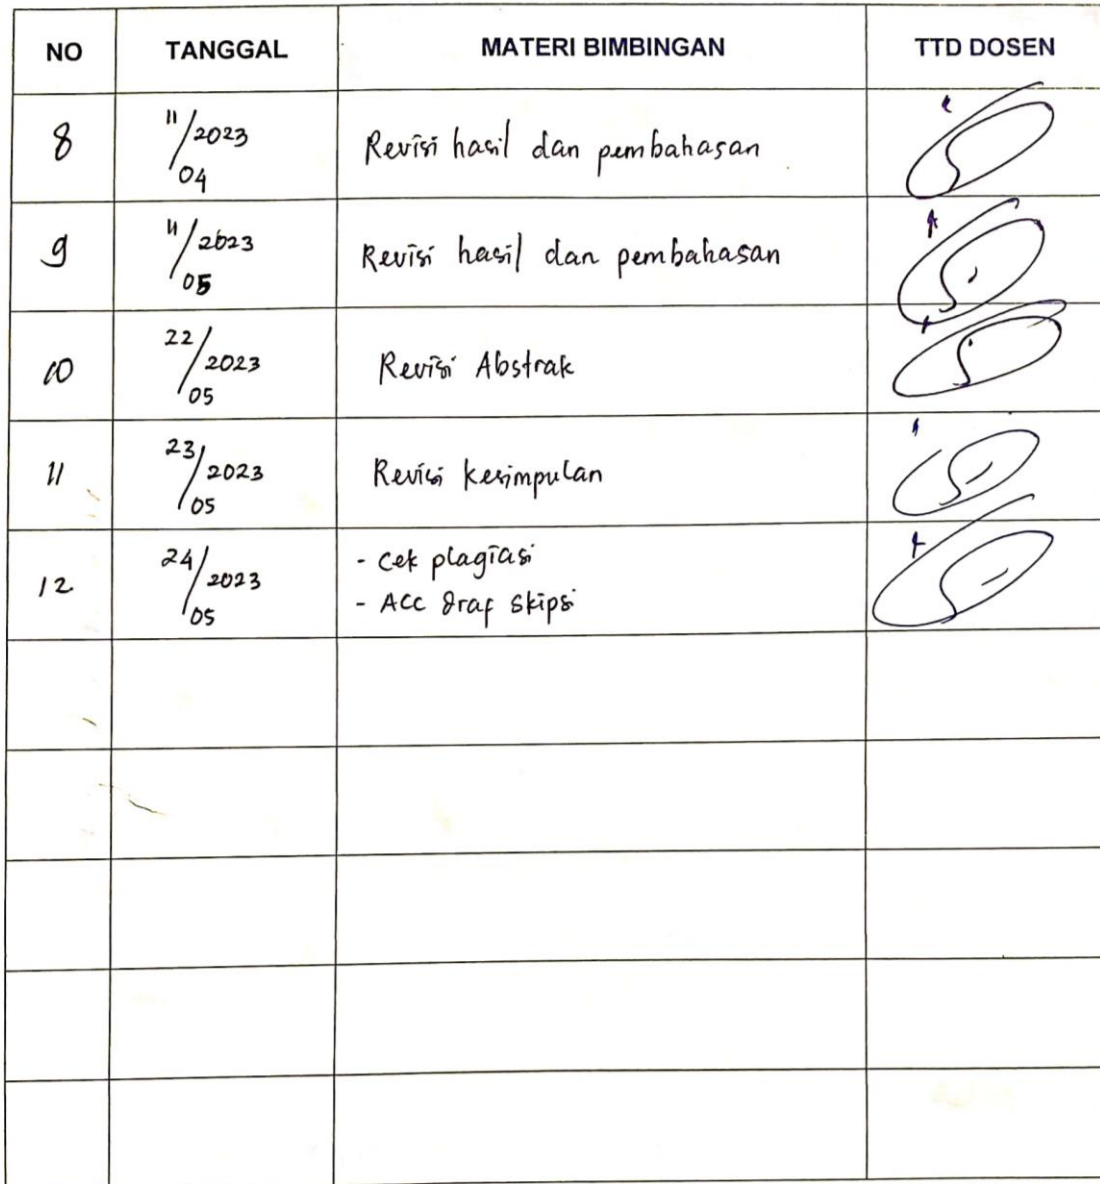 NO TANGGAL MATERI BIMBINGAN TTD DOSEN
8 11/04 2023 Revisi hasil dan pembahasan
9 11/05 2023 Revisi hasil dan pembahasan
10 22/05 2023 Revisi Abstrak
11 23/05 2023 Revisi kesimpulan
12 24/05 2023 - Cek plagiasi
- ACC draf skipsi